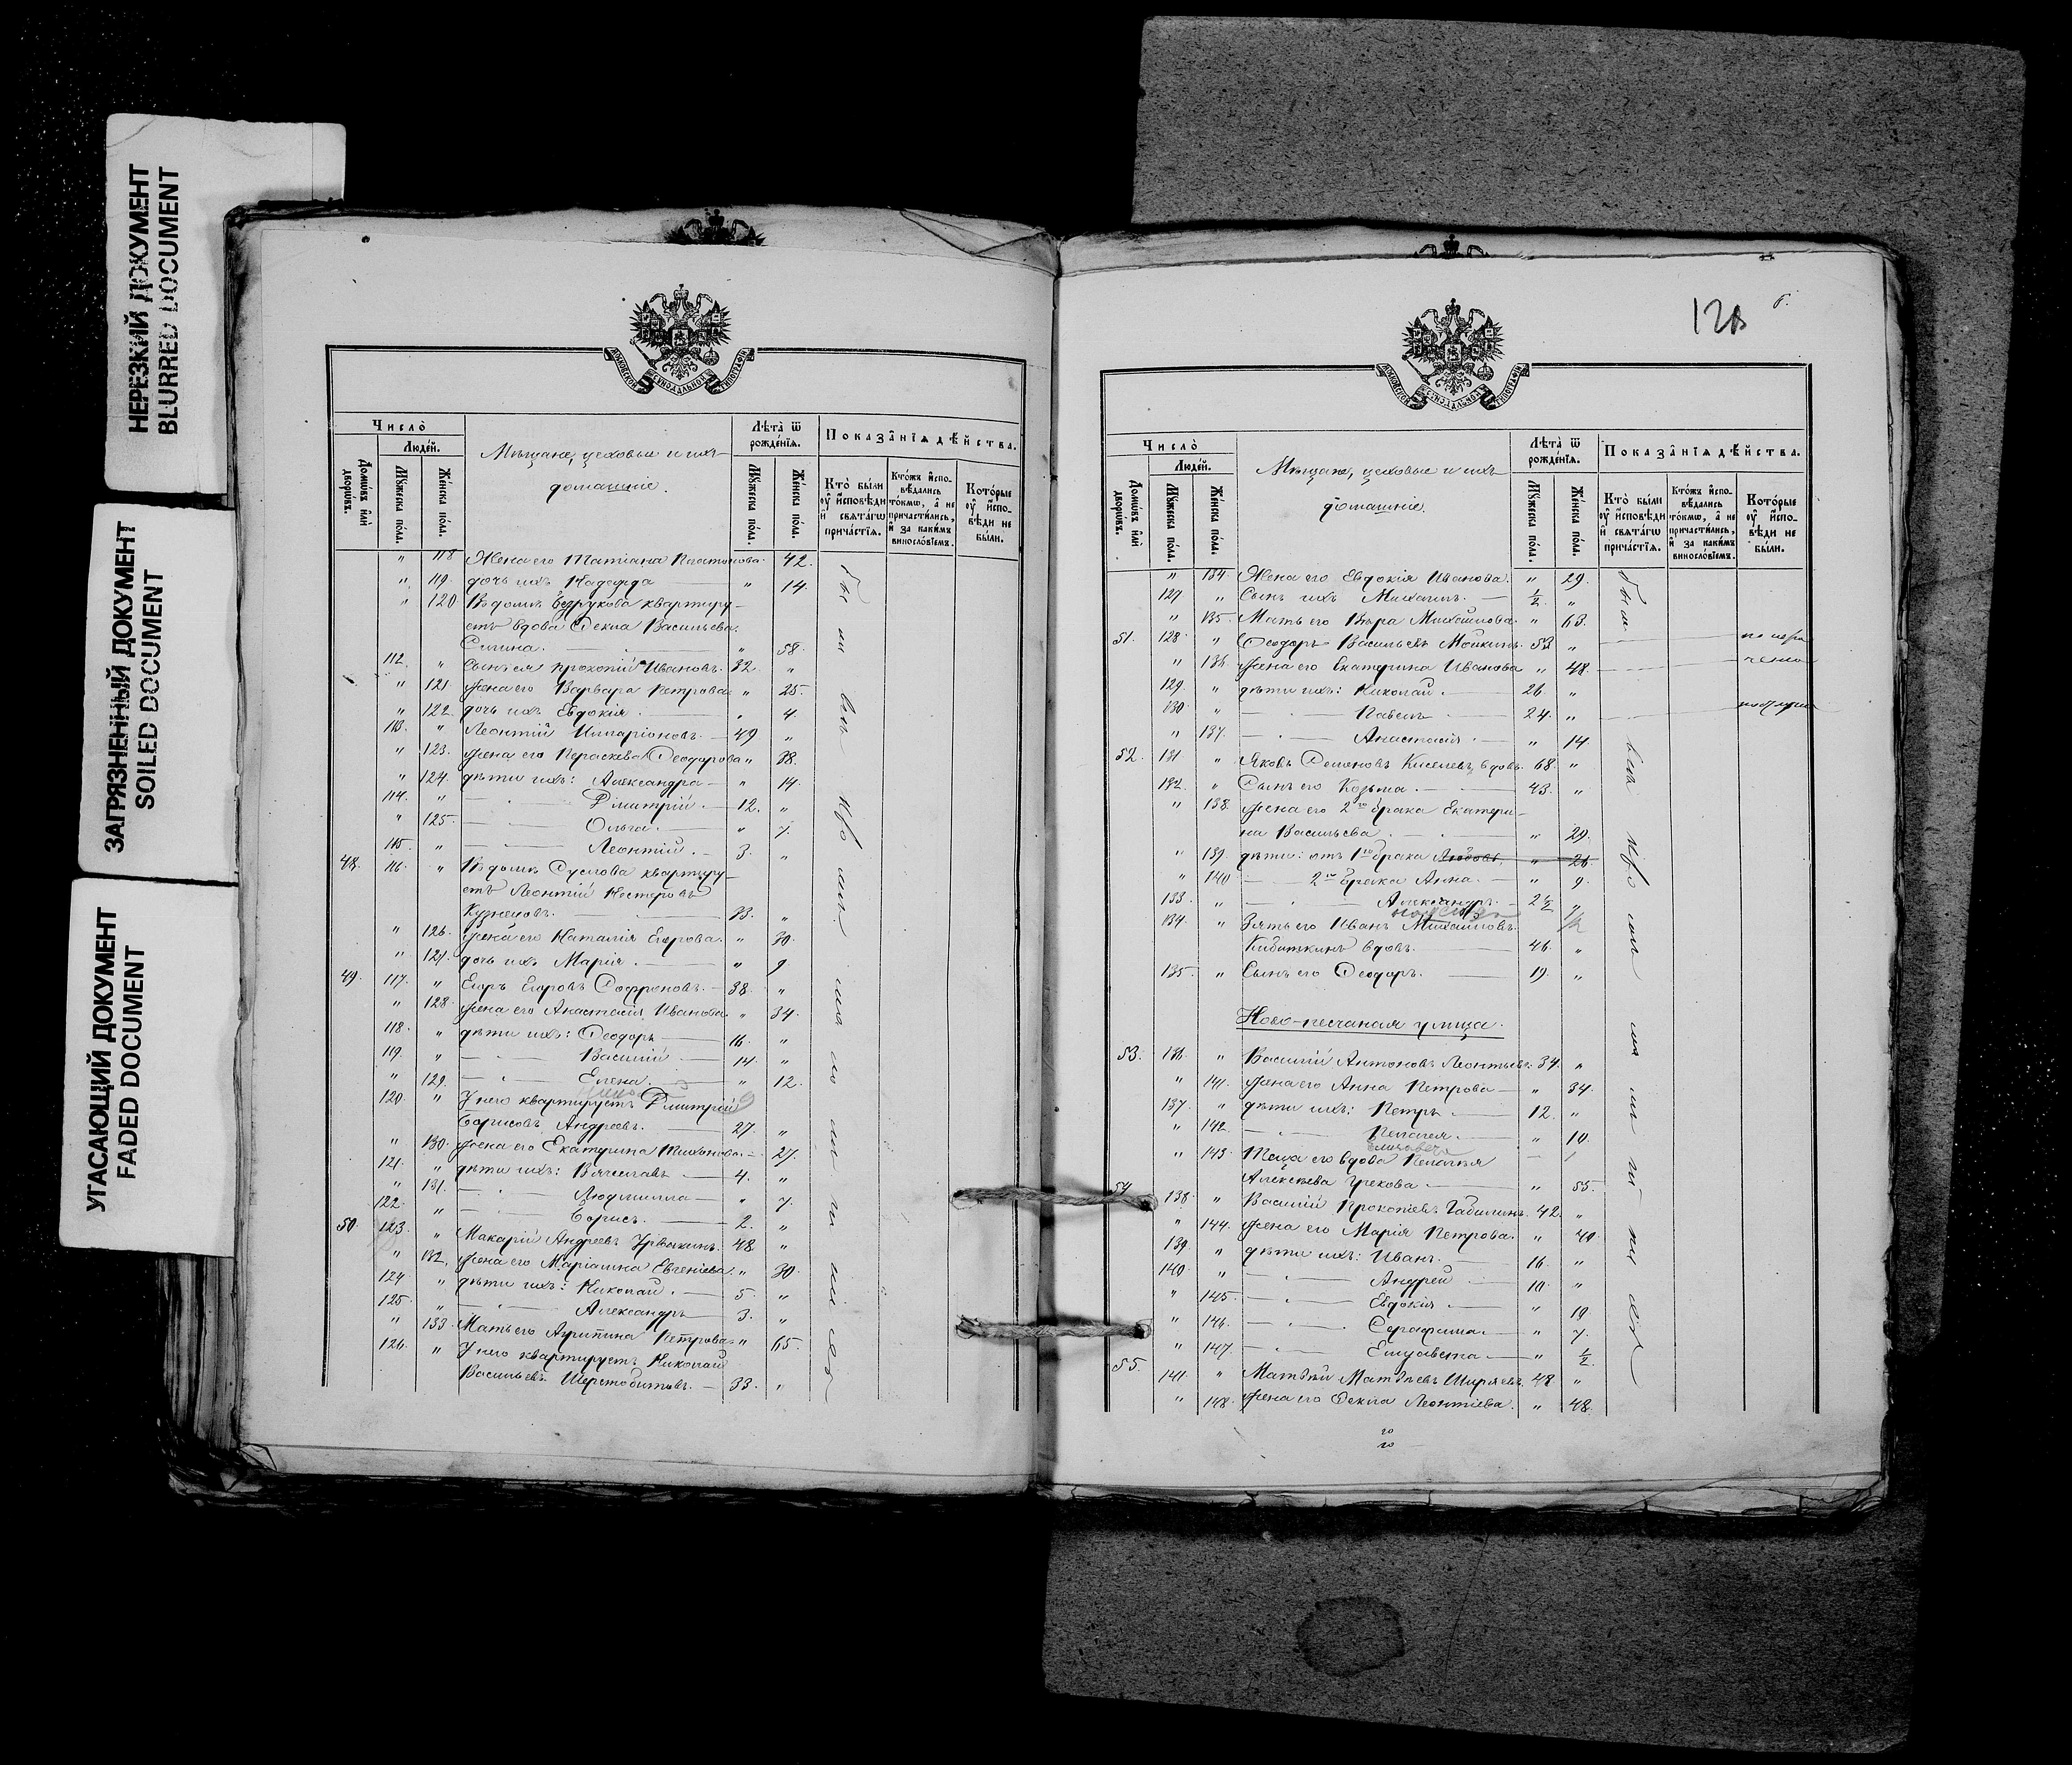 НЕРЕЗКИЙ ДОКУМЕНТ
BLURRED DOCUMENT
ЗАГРЯЗНЕННЫЙ ДОКУМЕНТ
SOILED DOCUMENT
УГАСАЮЩИЙ ДОКУМЕНТ
FADED DOCUMENT
Число̀
Людéй.
Домѡ́въ и҆лѝ дворѡ́въ.
Мꙋ́жеска по́ла.
Же́нска по́ла.
Мѣщане, цеховые и ихъ
домашніе.
Лѣ́та ѿ рожде́нїѧ.
Мꙋ́жеска по́ла.
Же́нска по́ла.
Показа̑нїѧ дѣ́йства.
Кто̀ бы́ли оу҆ и҆сповѣди и҆ свѧта́гѡ прича́стїѧ.
Кто́жъ и҆спо-вѣдались то́кмѡ, а҆ не причасти́лись, и҆ за каки́мъ винослóвїемъ.
Кото́рые оу҆ и҆спо-вѣди не бы́ли.
" 118 Жена его Татіана Платонова. 42.
" 119. дочь ихъ Надежда " 14.
" 120 Въ домѣ Безрукова квартиру-
етъ вдова Ѳекла Васильева
" 58.
112. " Сынъ ея Прокопій Ивановъ. 32. "
" 121 Жена его Варвара Петрова " 25.
" 122. дочь ихъ Евдокія. " 4.
113. " Леонтій Иларіоновъ. 49 "
" 123. Жена его Параскева Ѳеодорова " 38.
" 124. дѣти ихъ: Александра " 14.
114. " Димитрій. 12. "
" 125. Ольга. " 7.
115. " Леонтій. 3. "
48. 116. " Въ домѣ Суслова квартиру-
етъ Леонтій Несторовъ
Кузнецовъ. 33. "
" 126. Жена его Наталія Егорова. " 30.
" 127. дочь ихъ Марія. " 9
49. 117. " Егоръ Егоровъ Софроновъ. 38. "
" 128. Жена его Анастасія Иванова " 34.
118. " дѣти ихъ: Ѳеодоръ 16. "
119. " Василій 14. "
" 129. Елена. " 12.
120. " У него квартируетъ Димитрій
Борисовъ Андреевъ. 27. "
" 130. Жена его Екатерина Тихонова. 27.
121. " дѣти ихъ: Вячеславъ 4. "
" 131. Людмилла " 7.
122. " Борисъ. 2. "
50. 123. " Макарій Андреевъ Урывкинъ. 48. "
" 132. Жена его Маріамна Евгеніева. " 30.
124. " дѣти ихъ: Николай. 5. "
125. " Александръ 3. "
" 133. Мать его Агрипина Петрова " 65.
126. " У него квартируетъ Николай
Васильевъ Шерстобитовъ. 33. "
Число̀
Людéй.
Домѡ́въ и҆лѝ дворѡ́въ.
Мꙋ́жеска по́ла.
Же́нска по́ла.
Мѣщане, цеховые и ихъ
домашніе.
Лѣ́та ѿ рожде́нїѧ.
Мꙋ́жеска по́ла.
Же́нска по́ла.
Показа̑нїѧ дѣ́йства.
Кто̀ бы́ли оу҆ и҆сповѣди и҆ свѧта́гѡ прича́стїѧ.
Кто́жъ и҆спо-вѣдались то́кмѡ, а҆ не причасти́лись, и҆ за каки́мъ винослóвїемъ.
Кото́рые оу҆ и҆спо-вѣди не бы́ли.
" 134. Жена его Евдокія Иванова. " 29.
127. " Сынъ ихъ Михаилъ. ½. "
" 135. Мать его Вѣра Михайлова. " 63.
51. 128. " Ѳеодоръ Васильевъ Мойкинъ. 53 "
" 136. Жена его Екатерина Иванова " 48.
129. " дѣти ихъ: Николай. 26. "
130. " Павелъ 24. "
" 137. Анастасія. " 14.
52. 131 " Яковъ Семеновъ Киселевъ, вдовъ. 68. "
132. " Сынъ его Козьма. 43. "
" 138. Жена его 2го брака Екатери-
на Васильева. " 29.
" 139. дѣти: отъ 1го брака Любовь " 26
" 140 2го брака Анна. " 9.
133. " Александръ. 2½ "
134. " Зять его Иванъ Михаиловъ.
Кибиткинъ вдовъ. 46. "
135. " Сынъ его Ѳеодоръ. 19. "
Ново-песчаная улица.
53. 136. " Василій Антоновъ Леонтьевъ. 34. "
" 141. Жена его Анна Петрова " 34.
137. " дѣти ихъ: Петръ. 12. "
" 142. Пелагея. " 10.
Елизавета
" 143. Теща его вдова Пелагія
Алексѣева Грекова. " 55.
54. 138. " Василій Прокопіевъ Габилинъ. 42. "
" 144. Жена его Марія Петрова. " 40.
139. " дѣти ихъ: Иванъ. 16. "
140. " Андрей 10. "
" 145. Евдокія. " 19.
" 146. Серафима. " 7.
" 147. Елизавета. " ½.
55. 141. " Матѳей Матѳеевъ Ширяевъ. 48 "
" 148. Жена его Ѳекла Леонтіева. " 48.